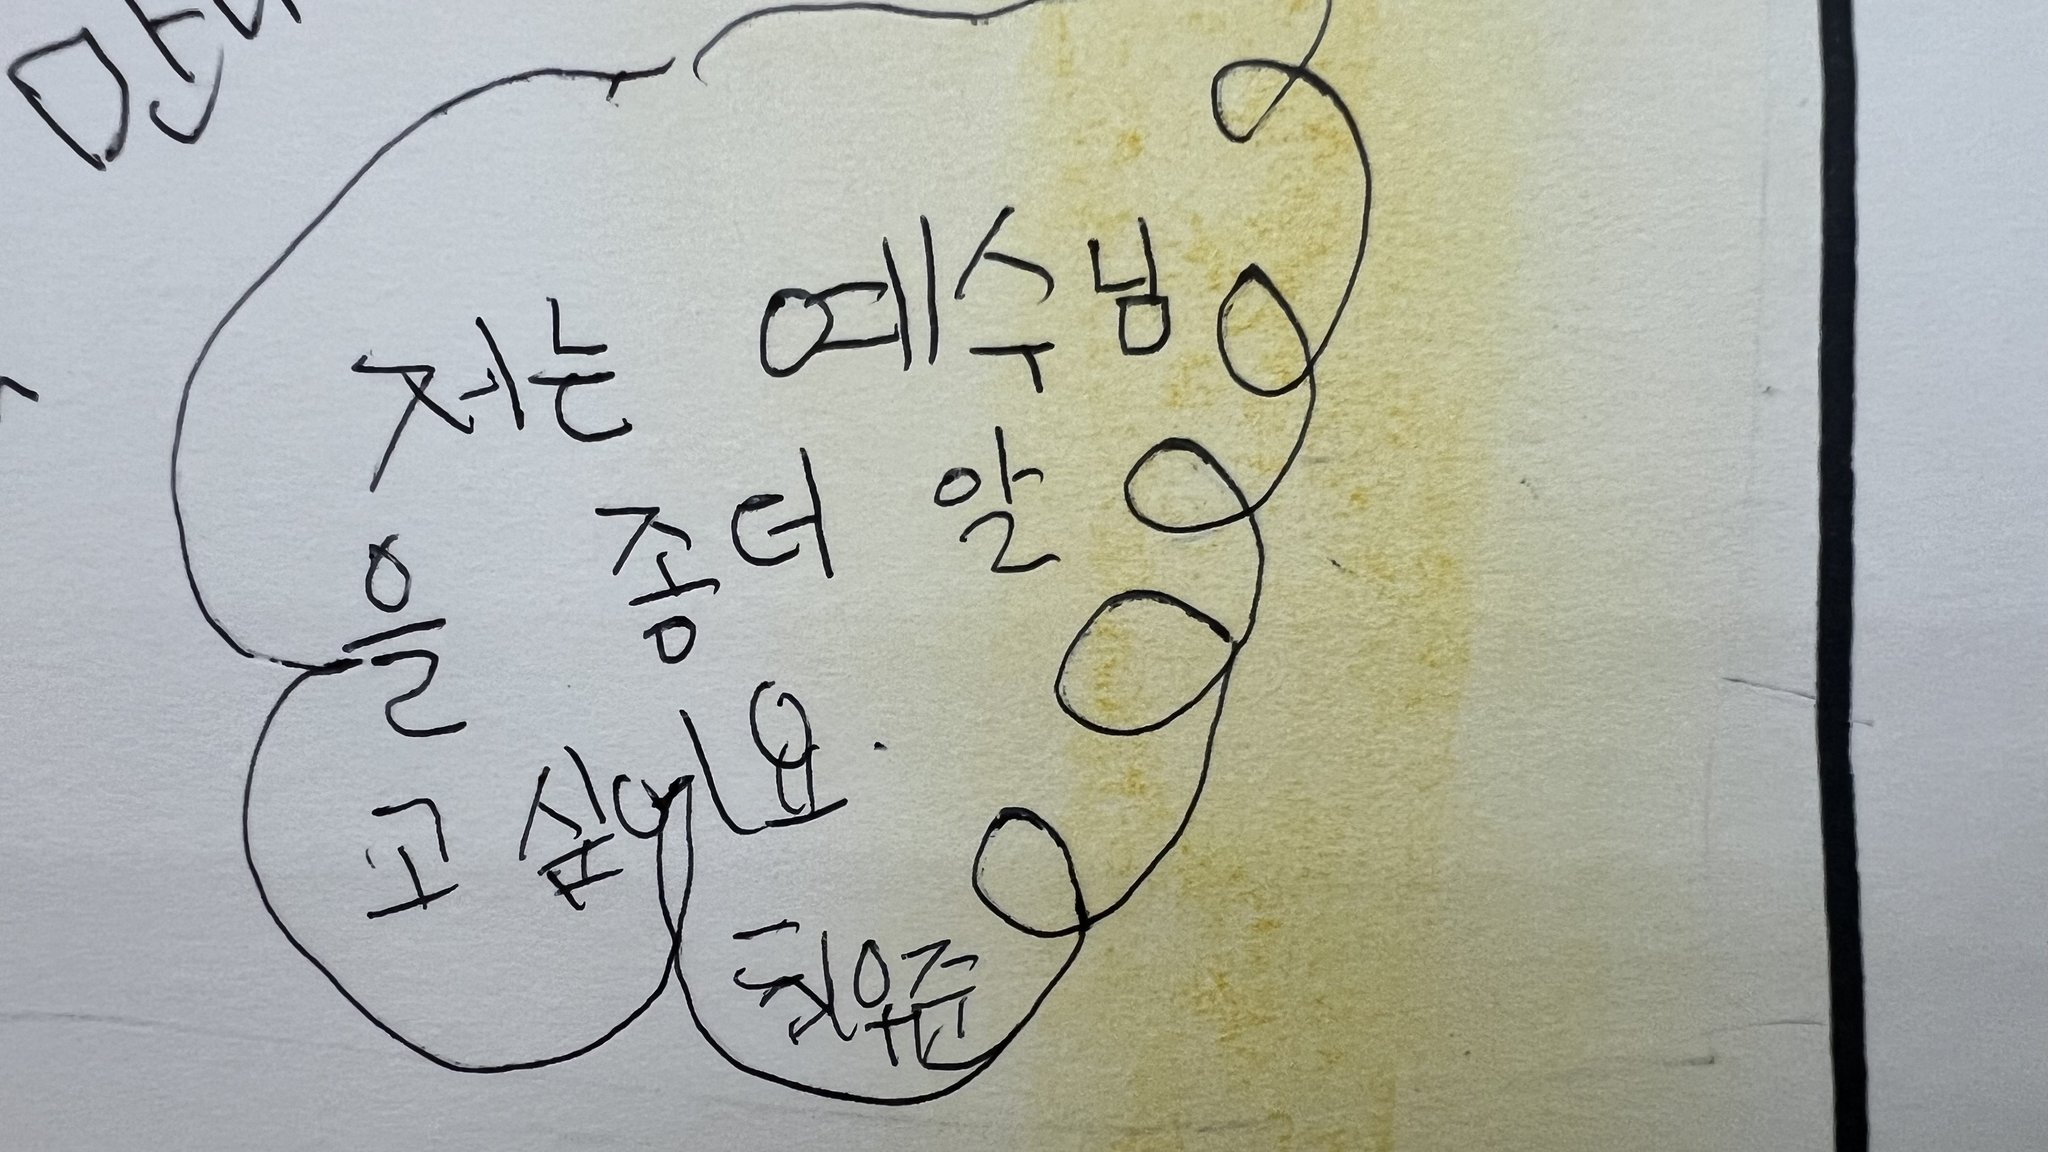 저는 예수님
을 좀더 알
고 싶어요.